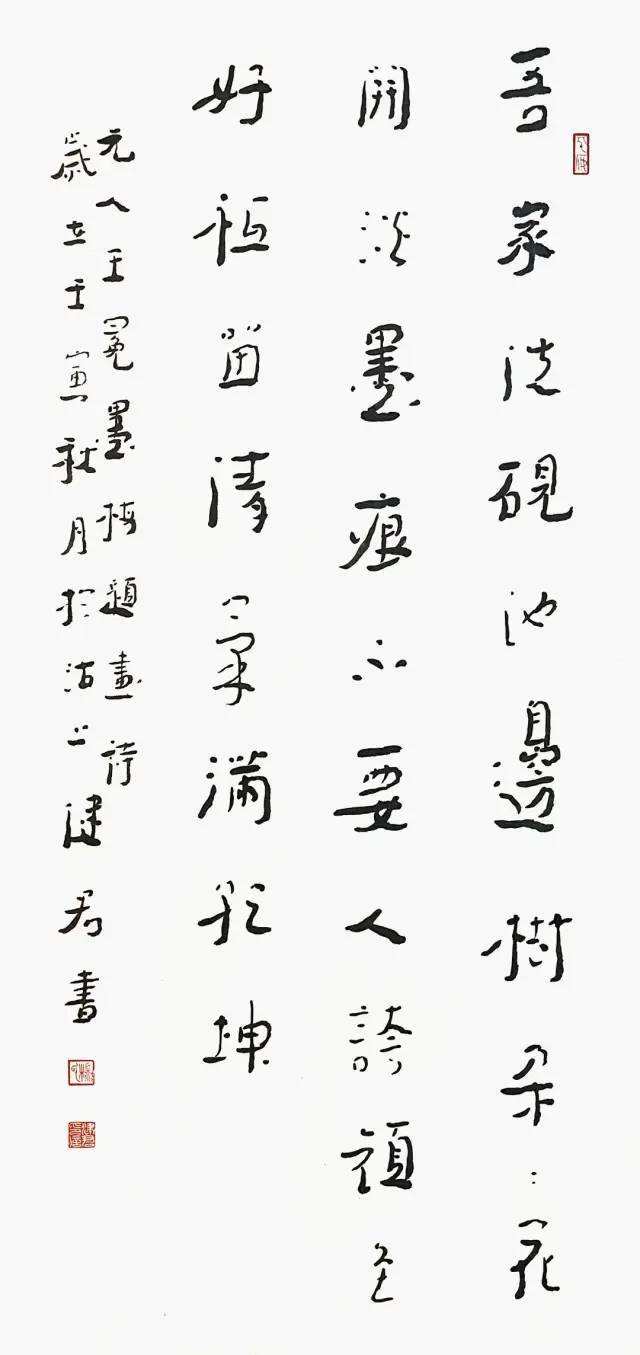 吾家洗硯池邊樹朵〻花
開淡墨痕不要人誇顏色
好祇留清氣滿乾坤
元人王冕墨梅題畫詩
歲在壬寅秋月於沽上健君書